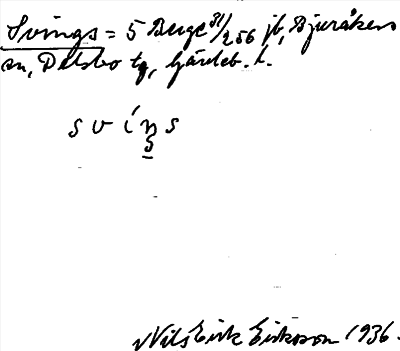 Svings = 5 Berge 31/256 jb, Bjuråkers
sn, Delsbo tg, Gävleb. l.
s v í ŋ s
Nils Erik Eriksson 1936.